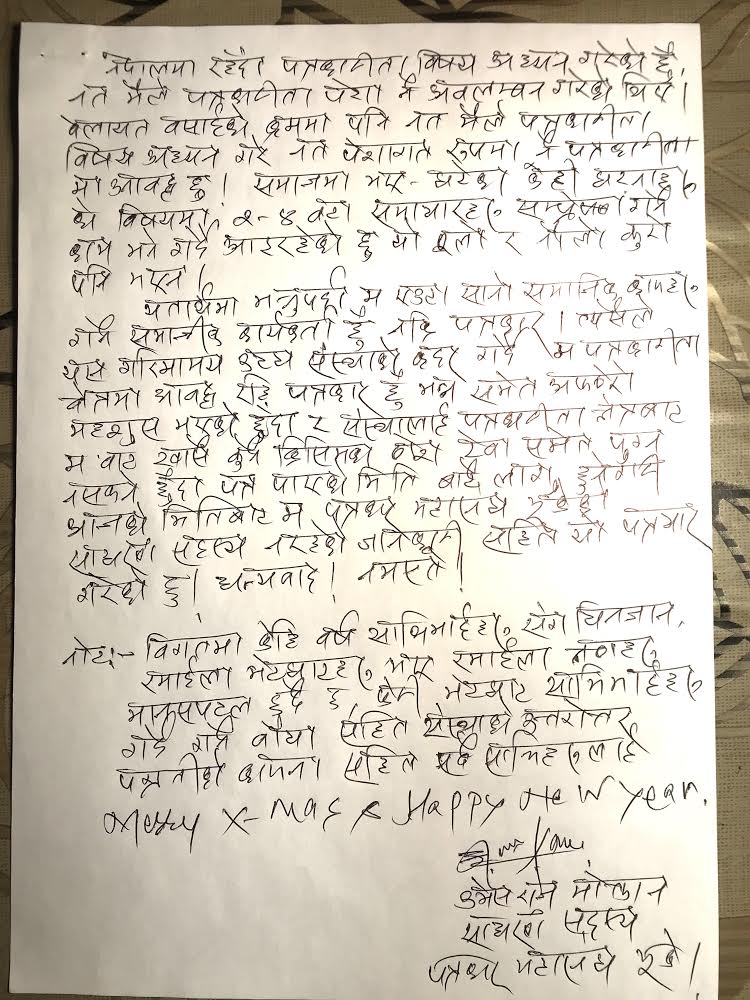 नेपालमा रहँदा पत्रकारीता विषय अध्ययन गरेको छैन,
नत मैले पत्रकारीता पेशा नै अवलम्बन गरेको थिएँ।
वेलायत वसाईको क्रममा पनि नत मैले पत्रकारीता
विषय अध्ययन गरें नत पेशागत रूपमा नै पत्रकारीता
मा आवद्द छु। समाजमा भए-घटेका केही घटनाहरु
को विषयमा २-४ वटा समाचारहरु सम्प्रेषण गर्ने
काम भने गर्दै आइरहेको छु यो ठूलो र नौलो कुरा
पनि भएन।
यतार्थमा भन्नुपर्दा म एउटा सानो समाजिक कामहरु
गर्ने समाजीक कार्यकर्ता हुँ नकि पत्रकार। त्यसैले
यस गरिमामय संस्थाको कदर गर्दै म पत्रकारीता
क्षेत्रमा आवद्द रहि पत्रकार हुँ भन्न समेत अफ्ठेरो
महशुस भएको हुँदा र संस्थालाई पत्रकारीता क्षेत्रबाट
म बाट खासै कुनै किसिमको सेवा समेत पुग्न
नसक्ने हुँदा पत्र पाएको मिति बाटै लागु हुनेगरी
आजको मितिबाट म पत्रकार महासंघ युकेको
साधारण सदस्य नरहेको जानकारी सहित यो पत्राचार
गरेको छु। धन्यवाद। नमस्ते!
नोट:- विगतमा केहि वर्ष साथिभाईहरु संग चिनजान,
रमाईला भेटघाटहरु, भए रमाईला
मानसपटल छँदै छ, फेरी भेटघाट साथिभाईहरु
गर्दै गरौं सहित संस्थाको उत्तरोत्तर
प्रगतीको कामना सहित सबै साथिहरुलाई
Merry X-mas & Happy New Year.
साधारण सदस्य
पत्रकार महासंघ युके।